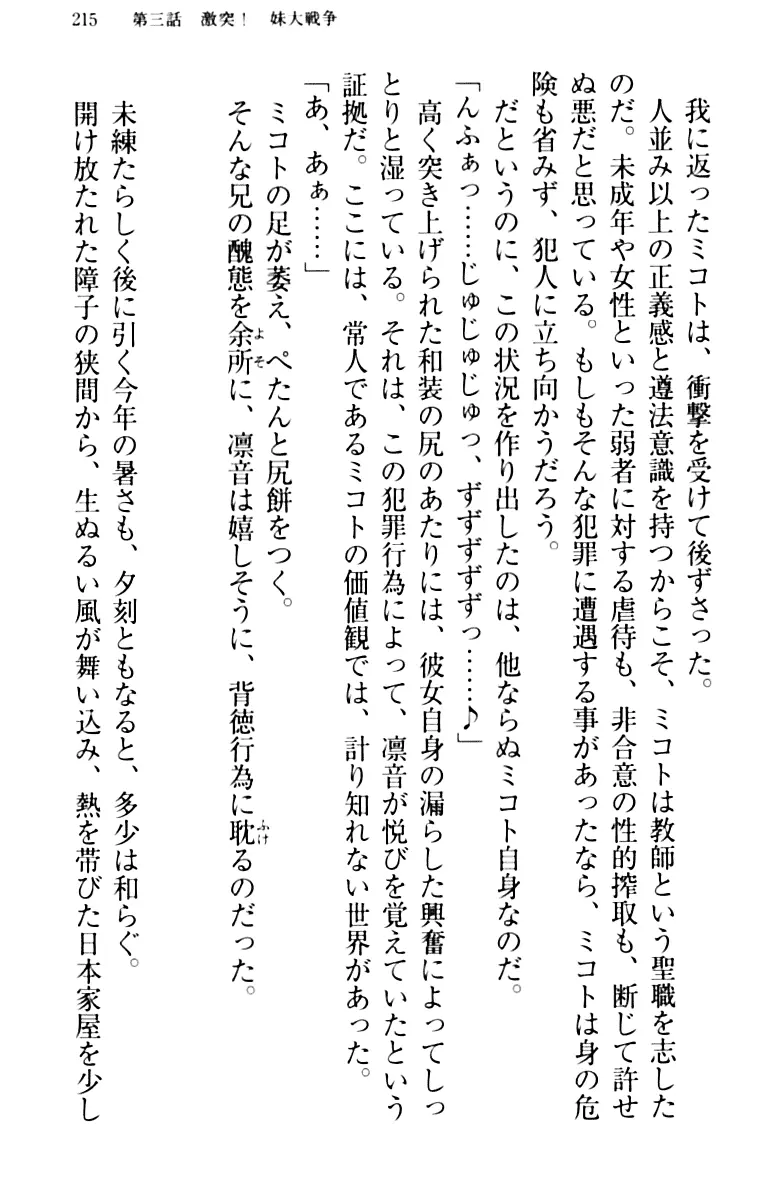 215　第三話　激突！　妹大戦争
我に返ったミコトは、衝撃を受けて後ずさった。
人並み以上の正義感と遵法意識を持つからこそ、ミコトは教師という聖職を志した
のだ。未成年や女性といった弱者に対する虐待も、非合意の性的搾取も、断じて許せ
ぬ悪だと思っている。もしもそんな犯罪に遭遇する事があったなら、ミコトは身の危
険も省みず、犯人に立ち向かうだろう。
だというのに、この状況を作り出したのは、他ならぬミコト自身なのだ。
「んふぁっ……じゅじゅじゅっ、ずずずずずっ……♪」
高く突き上げられた和装の尻のあたりには、彼女自身の漏らした興奮によってしっ
とりと湿っている。それは、この犯罪行為によって、凛音が悦びを覚えていたという
証拠だ。ここには、常人であるミコトの価値観では、計り知れない世界があった。
「あ、あぁ……」
ミコトの足が萎え、ぺたんと尻餅をつく。
そんな兄の醜態を余所に、凛音は嬉しそうに、背徳行為に耽るのだった。
未練たらしく後に引く今年の暑さも、夕刻ともなると、多少は和らぐ。
開け放たれた障子の狭間から、生ぬるい風が舞い込み、熱を帯びた日本家屋を少し